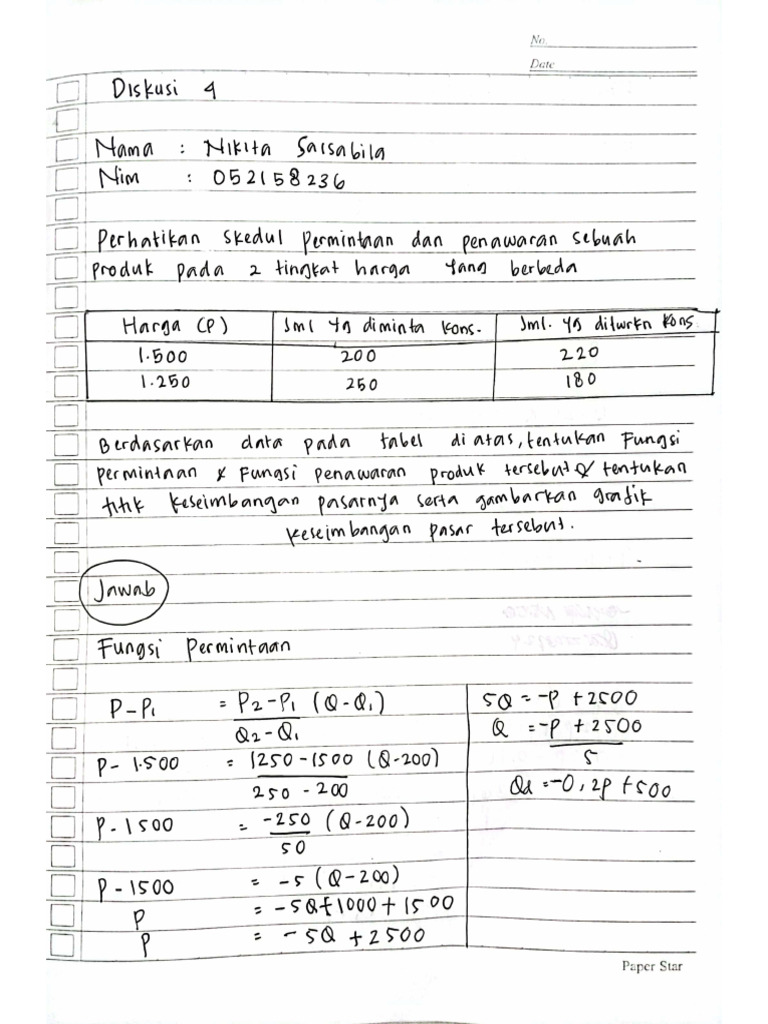 No.
Date
Diskusi 4
Nama : Nikita Salsabila
Nim : 052158236
Perhatikan skedul permintaan dan penawaran sebuah
produk pada 2 tingkat harga yang berbeda
Harga (P) Jml yg diminta kons. Jml. yg ditwrkn kons
1.500 200 220
1.250 250 180
Berdasarkan data pada tabel di atas, tentukan Fungsi
permintaan & Fungsi penawaran produk tersebut & tentukan
titik keseimbangan pasarnya serta gambarkan grafik
keseimbangan pasar tersebut.
Jawab
Fungsi Permintaan
P-P1 = P2-P1 (Q-Q1)
Q2-Q1
P- 1.500 = 1250-1500 (Q-200)
250 - 200
P-1500 = -250 (Q-200)
50
P-1500 = -5 (Q-200)
P = -5Q+1000+1500
P = -5Q +2500
5Q = -P +2500
Q = -P +2500
5
Qd = -0,2P +500
Paper Star